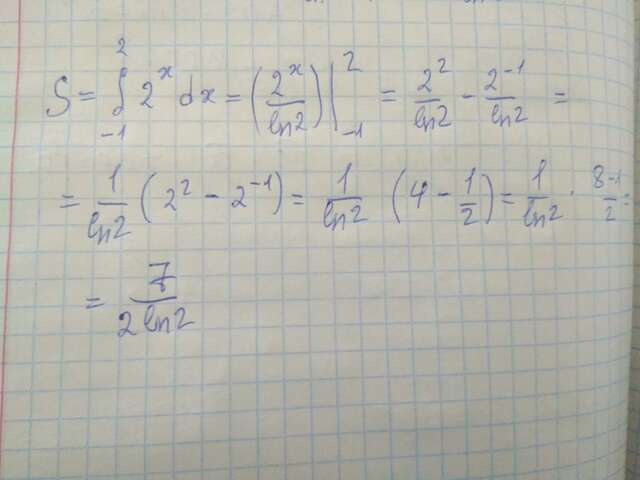 S = ∫₋₁² 2ˣ dx = (2ˣ/ln2)|₋₁² = 2²/ln2 - 2⁻¹/ln2 =
= 1/ln2 (2² - 2⁻¹) = 1/ln2 (4 - 1/2) = 1/ln2 · 8-1/2 =
= 7/2ln2